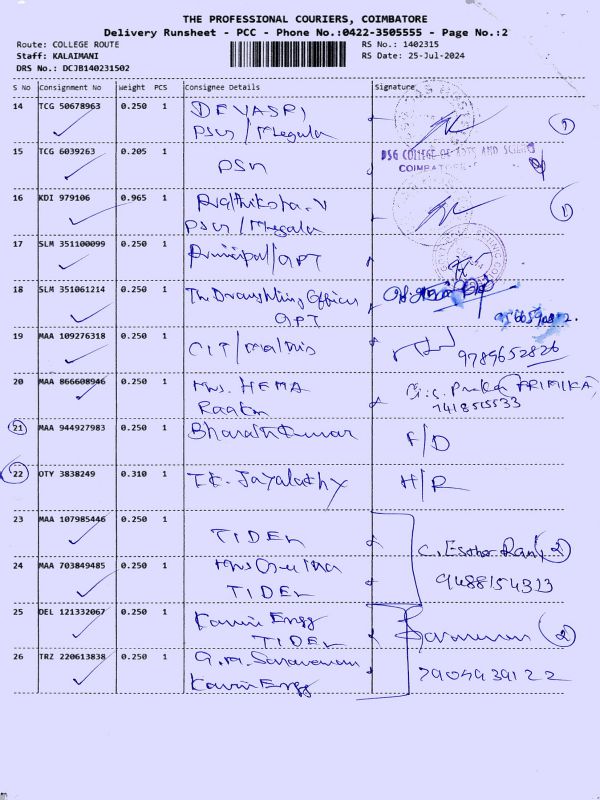 THE PROFESSIONAL COURIERS, COIMBATORE
Delivery Runsheet - PCC - Phone No.:0422-3505555 - Page No.:2
Route: COLLEGE ROUTE
Staff: KALAIMANI
DRS No.: DCJB140231502
RS No.: 1402315
RS Date: 25-Jul-2024
S No Consignment No Weight PCS Consignee Details Signature
14 TCG 50678963 0.250 1 DEVASRI
PSG/Megala
1
15 TCG 6039263 0.205 1 PSG
PSG COLLEGE OF ARTS AND SCIENCE
COIMBATORE
16 KDI 979106 0.965 1
PSG/Megala
1
17 SLM 351100099 0.250 1 Principal/GPT
18 SLM 351061214 0.250 1 The Draughting Officer
GPT
19 MAA 109276318 0.250 1 CIT/Maths 9789652826
20 MAA 866608946 0.250 1 Mrs. HEMA
7418515533
21 MAA 944927983 0.250 1 Bharathkumar F/D
22 OTY 3838249 0.310 1 H/R
23 MAA 107985446 0.250 1 TIDEL C. Esther Rani 2
24 MAA 703849485 0.250 1
TIDEL 9488154313
25 DEL 121332067 0.250 1 Kavin Engg
TIDEL 2
26 TRZ 220613838 0.250 1 G.M. Saravanan
Kavin Engg 7904939122